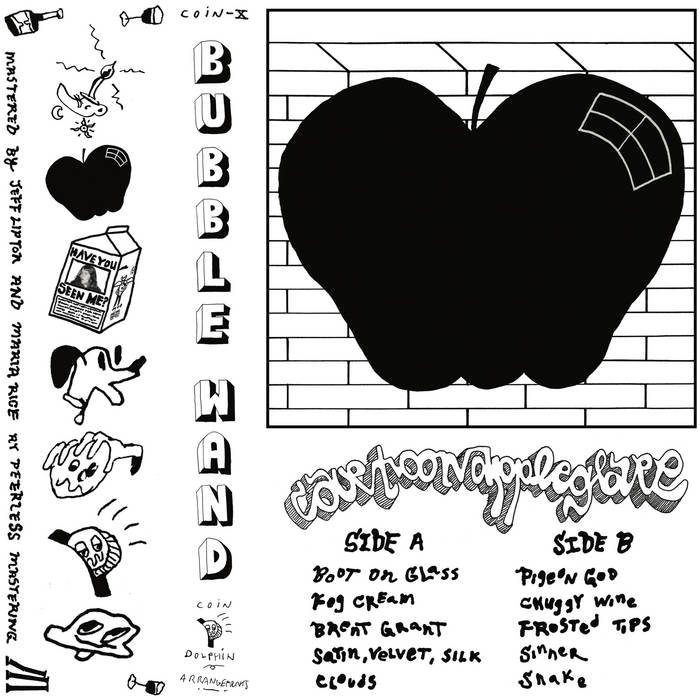 MASTERED By JEFF LIPTON AND MARIA RICE AT PEERLESS MASTERING
HAVE YOU
SEEN ME?
COIN-X
BUBBLE WAND
COIN
DOLPHIN
ARRANGEMENTS
SIDE A
BOOT On GLaSS
Fog CREam
BRENT GRANT
SaTin, VeLveT, SILK
CLouDS
SIDE B
PigeoN GOD
CHuggy Wine
FROSTed TiPS
Sinner
Snake